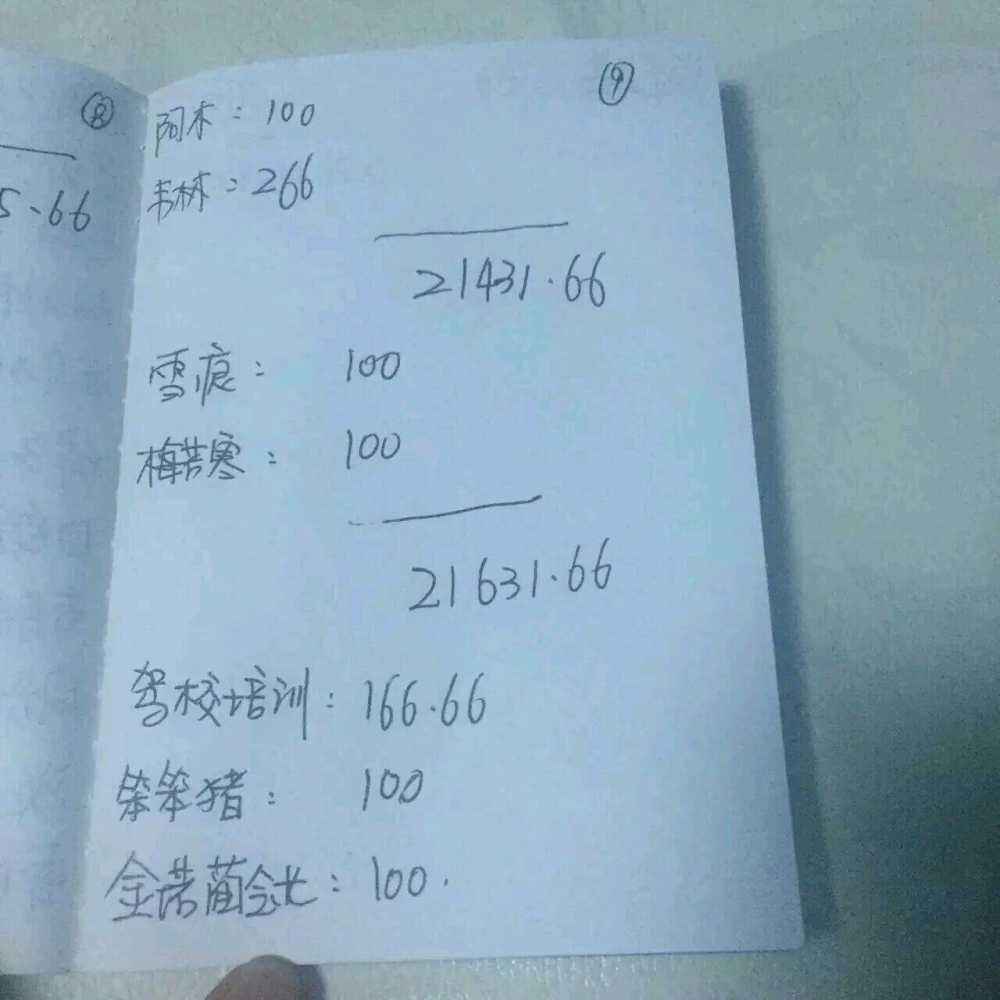 ⑧
5.66
⑨
阿木：100
韦林：266
21431.66
雪痕：100
梅若寒：100
21631.66
驾校培训：166.66
笨笨猪：100
金蒂兰会北：100.